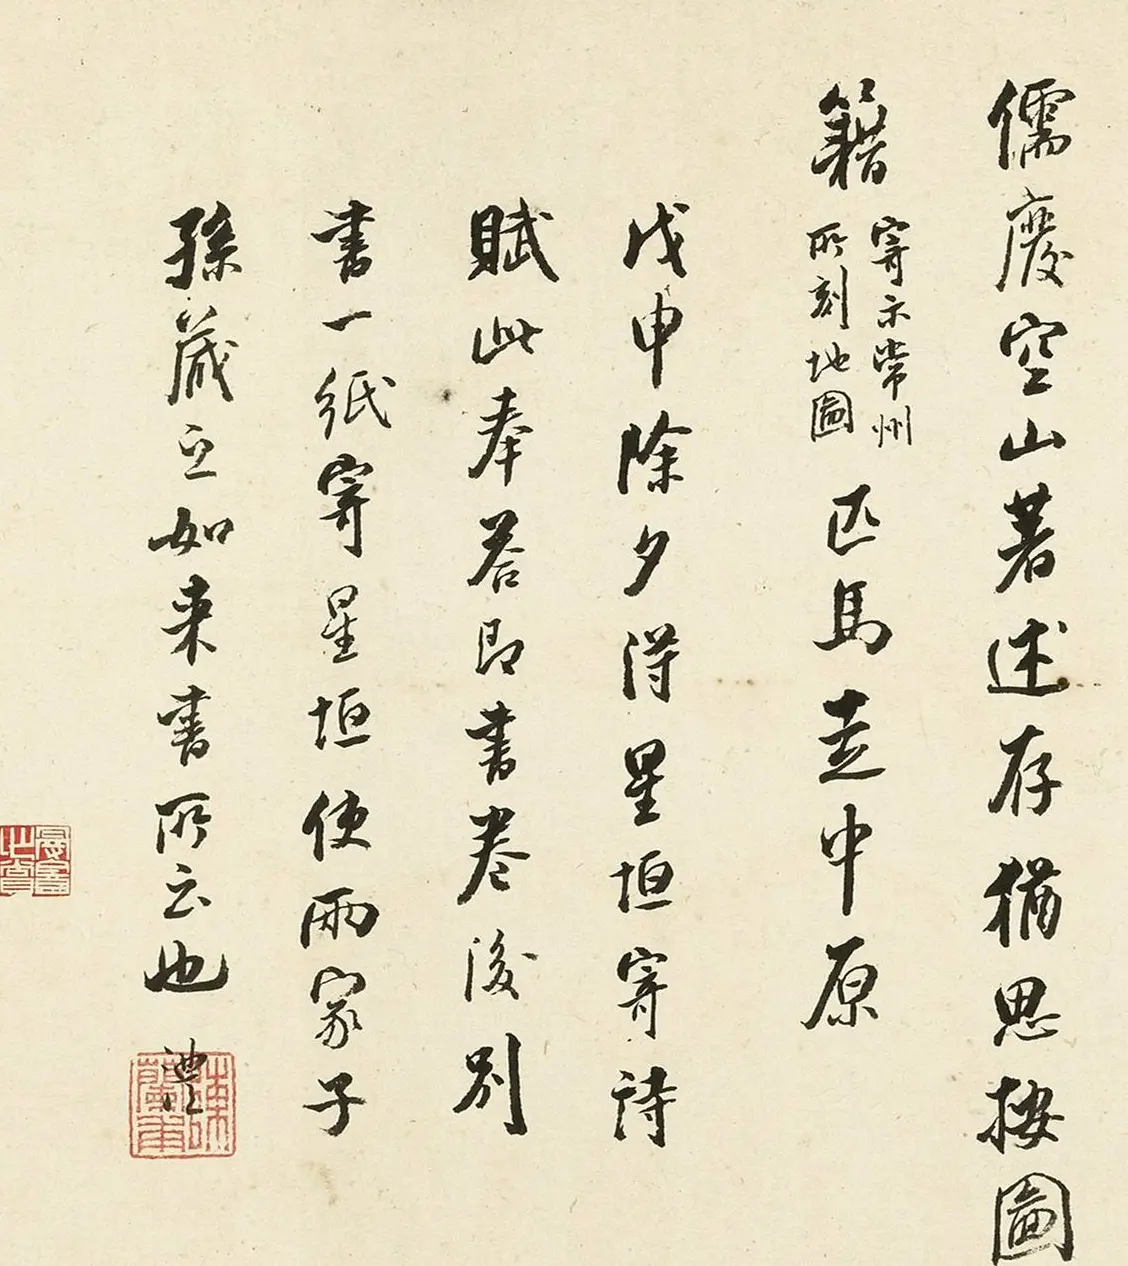 儒廢空山著述存猶思按圖
籍
寄示常州
所刻地圖
匹馬走中原
戊申除夕得星垣寄詩
賦此奉答即書卷後別
書一紙寄星垣使兩家子
孫藏之如来書所云也
澧